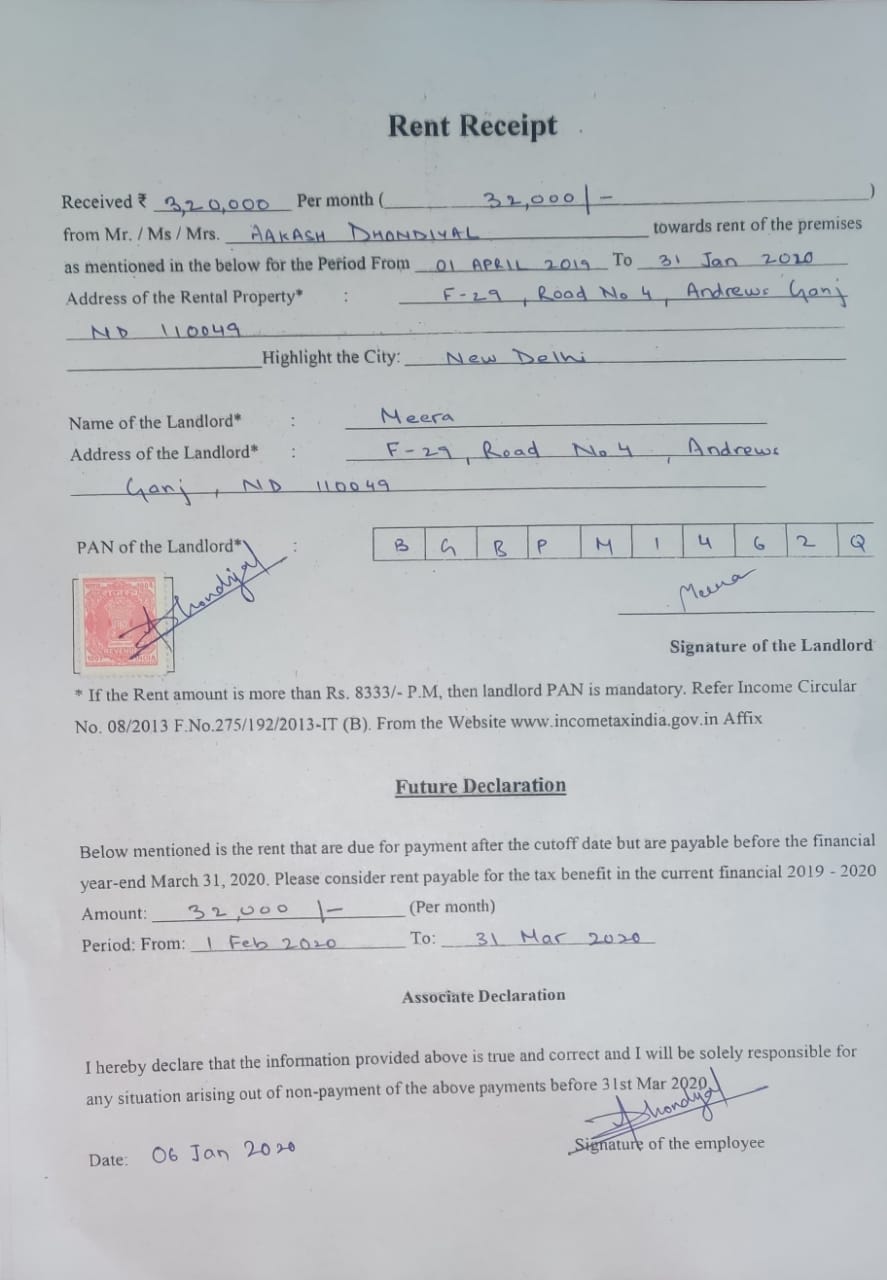 Rent Receipt
Received ₹ 3,20,000 Per month ( 32,000/- )
from Mr. / Ms / Mrs. AAKASH DHONDIYAL towards rent of the premises
as mentioned in the below for the Period From 01 APRIL 2019 To 31 Jan 2020
Address of the Rental Property* : F-29, Road No 4, Andrews Ganj
ND 110049
Highlight the City: New Delhi
Name of the Landlord* : Meera
Address of the Landlord* : F-29, Road No 4, Andrews
Ganj, ND 110049
PAN of the Landlord* : B G B P M 1 4 6 2 Q
Dhondiyal
Meera
REVENUE
INDIA
Signature of the Landlord
* If the Rent amount is more than Rs. 8333/- P.M, then landlord PAN is mandatory. Refer Income Circular
No. 08/2013 F.No.275/192/2013-IT (B). From the Website www.incometaxindia.gov.in Affix
Future Declaration
Below mentioned is the rent that are due for payment after the cutoff date but are payable before the financial
year-end March 31, 2020. Please consider rent payable for the tax benefit in the current financial 2019 - 2020
Amount: 32,000/- (Per month)
Period: From: 1 Feb 2020 To: 31 Mar 2020
Associate Declaration
I hereby declare that the information provided above is true and correct and I will be solely responsible for
any situation arising out of non-payment of the above payments before 31st Mar 2020.
Dhondiyal
Signature of the employee
Date: 06 Jan 2020